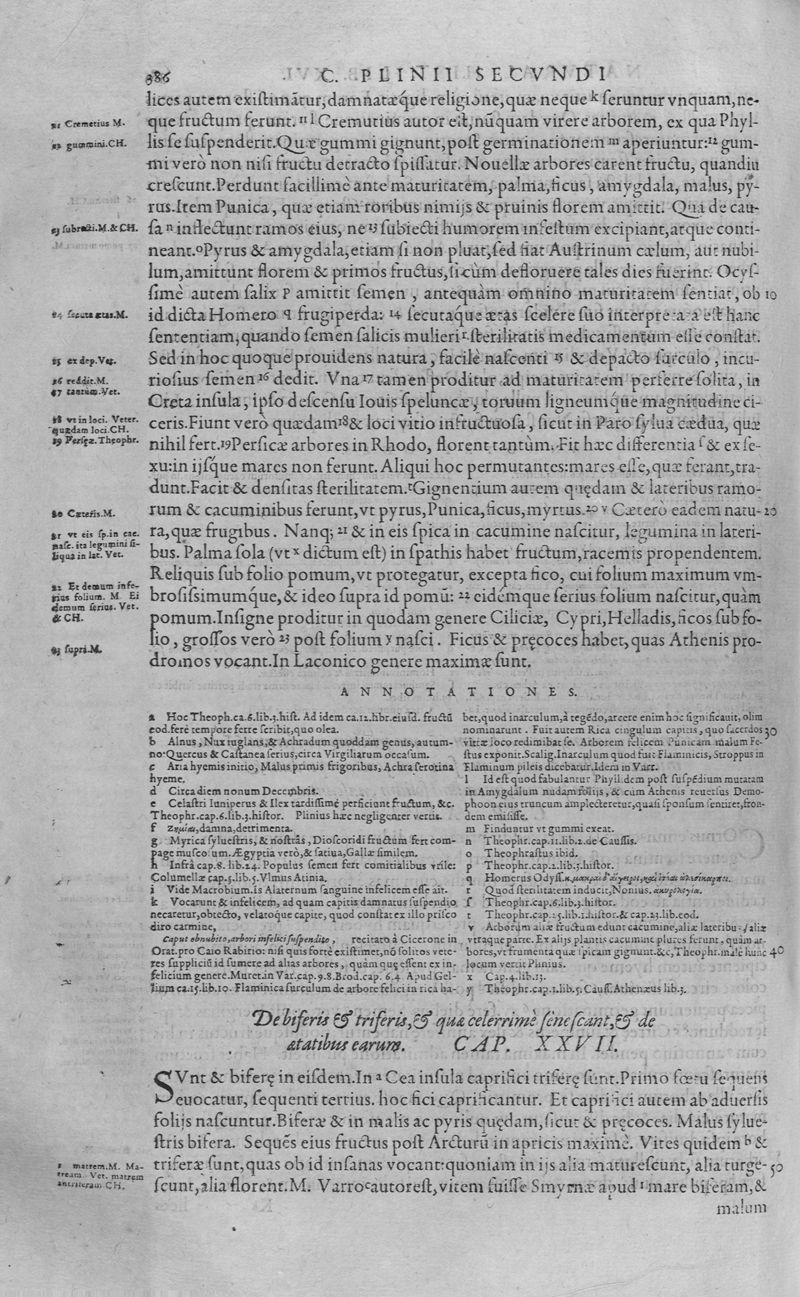 386
C. PLINII SECVNDI
lices autem existimãtur, damnatæque religione, quæ neque k seruntur vnquam, ne-
51 Cremetius M.
que fructum ferunt. 11 l Cremutius autor est, nũquam virere arborem, ex qua Phyl-
gummini. CH.
lis se suspenderit. Quæ gummi gignunt, post germinationem m aperiuntur: 12 gum-
mi verò non nisi fructu detracto spissatur. Nouellæ arbores carent fructu, quandiu
crescunt. Perdunt facillimè ante maturitatem, palma, ficus, amygdala, malus, py-
rus. Item Punica, quæ etiam roribus nimijs & pruinis florem amittit. Qua de cau-
subiecti. M. & CH.
sa n inflectunt ramos eius, ne 13 subiecti humorem infestum excipiant, atque conti-
neant. o Pyrus & amygdala, etiam si non pluat, sed fiat Austrinum cælum, aut nubi-
lum, amittunt florem & primos fructus, si cùm defloruere tales dies fuerint. Ocys-
simè autem salix p amittit semen, antequàm omnino maturitatem sentiat, ob 10
secuta ætas. M.
id dicta Homero q frugiperda: 14 secutaque ætas scelere suo interpretata est hanc
sententiam, quando semen salicis mulieri r sterilitatis medicamentum esse constat.
ex dep. Vet.
Sed in hoc quoque prouidens natura, facilè nascenti 15 & depacto surculo, incu-
16 reddit. M.
riosius semen 16 dedit. Vna 17 tamen proditur ad maturitatem perferre solita, in
tantùm. Vet.
Creta insula, ipso descensu Iouis speluncæ, toruum ligneumque magnitudine ci-
18 vt in loci. Veter.
quædam loci. CH.
ceris. Fiunt verò quædam 18 & loci vitio infructuosa, sicut in Paro sylua cædua, quæ
19 Persęæ. Theophr.
nihil fert. 19 Persicæ arbores in Rhodo, florent tantùm. Fit hæc differentia s & ex se-
xu: in ijsque mares non ferunt. Aliqui hoc permutantes: mares esse, quæ ferant, tra-
dunt. Facit & densitas sterilitatem. t Gignentium autem quędam & lateribus ramo-
20 Cæteris. M.
rum & cacuminibus ferunt, vt pyrus, Punica, ficus, myrtus. 20 v Cætero eadem natu- 20
21 vt eis sp. in cac.
nasc. ita legumini si-
liqua in lat. Vet.
ra, quæ frugibus. Nanq; 21 & in eis spica in cacumine nascitur, legumina in lateri-
bus. Palma sola (vt x dictum est) in spathis habet fructum, racemis propendentem.
Reliquis sub folio pomum, vt protegatur, excepta fico, cui folium maximum vm-
22 Et demum infe-
rius folium. M. Ei
demum serius. Vet.
& CH.
brosissimumque, & ideo supra id pomũ: 22 eidémque serius folium nascitur, quàm
pomum. Insigne proditur in quodam genere Ciliciæ, Cypri, Helladis, ficos sub fo-
23 supri. M.
lio, grossos verò 23 post folium y nasci. Ficus & pręcoces habet, quas Athenis pro-
dromos vocant. In Laconico genere maximæ sunt.
ANNOTATIONES.
a Hoc Theoph. ca. 6. lib. 3. hist. Ad idem ca. 12. libr. eiusd. fructũ
eod. ferè tempore ferre scribit, quo olea.
b Alnus, Nux iuglans, & Achradum quoddam genus, autum-
no: Quercus & Castanea serius, circa Virgiliarum occasum.
c Aria hyemis initio, Malus primis frigoribus, Achra serotina
hyeme.
d Circa diem nonum Decembris.
e Celastri Iuniperus & Ilex tardissimè perficiunt fructum, &c.
Theophr. cap. 6. lib. 3. histor. Plinius hæc negligenter vertit.
f Ζημίαι, damna, detrimenta.
g Myrica syluestris, & nostras, Dioscoridi fructum fert com-
page muscosum. Ægyptia verò, & satiua, Gallæ similem.
h Infrà cap. 8. lib. 24. Populus semen fert comitialibus vtile:
Columellæ cap. 5. lib. 5. Vlmus Atinia.
i Vide Macrobium. Is Alaternum sanguine infelicem esse ait.
k Vocarunt & infelicem, ad quam capitis damnatus suspendio
necaretur, obtecto, velatoque capite, quod constat ex illo prisco
diro carmine,
Caput obnubito, arbori infelici suspendito, recitato à Cicerone in
Orat. pro Caio Rabirio: nisi quis fortè existimet, nõ solitos vete-
res suppliciũ id sumere ad alias arbores, quàm quę essent ex in-
felicium genere. Muret. in Var. cap. 9. 8. Brod. cap. 6. 4. Apud Gel-
lium ca. 15. lib. 10. Flaminica surculum de arbore felici in rica ha-
bet, quod inarculum, à tegẽdo, arcere enim hoc significauit, olim
nominarunt. Fuit autem Rica cingulum capitis, quo sacerdos 30
vittæ loco redimibatse. Arborem felicem Punicam malum Fe-
stus exponit. Scalig. Inarculum quod fuit Flaminicis, Stroppus in
Flaminum pileis dicebatur. Idem in Varr.
l Id est quod fabulantur Phyllidem post suspẽdium mutatam
in Amygdalum nudam folijs, & cùm Athenis reuersus Demo-
phoon eius truncum amplecteretur, quasi sponsum sentiret, fron-
dem emisisse.
m Finduntur vt gummi exeat.
n Theophr. cap. 11. lib. 2. de Caussis.
o Theophrastus ibid.
p Theophr. cap. 2. lib. 3. histor.
q Homerus Odyss.
r Quod sterilitatem inducit, Nonius.
s Theophr. cap. 6. lib. 3. histor.
t Theophr. cap. 15. lib. 1. histor. & cap. 23. lib. eod.
v Arborum aliæ fructum edunt cacumine, aliæ lateribus, aliæ
vtraque parte. Ex alijs plantis cacumine plures ferunt, quàm ar-
bores, vt frumenta quæ spicam gignunt. &c, Theophr. malè hunc 40
locum vertit Plinius.
x Cap. 4. lib. 13.
y Theophr. cap. 1. lib. 5. Causs. Athenæus lib. 3.
De biferis & triferis, & qua celerrimè senescant, & de
ætatibus earum. CAP. XXVII.
SVnt & biferę in eisdem. In a Cea insula caprifici triferę sunt. Primo fœtu sequens
euocatur, sequenti tertius. hoc fici caprificantur. Et caprifici autem ab aduersis
folijs nascuntur. Biferæ & in malis ac pyris quędam, sicut & pręcoces. Malus sylue-
stris bifera. Sequẽs eius fructus post Arcturũ in apricis maximè. Vites quidem b &
1 matrem. M. Ma-
tream. Vet. matrem
CH.
triferæ sunt, quas ob id insanas vocant: quoniam in ijs alia maturescunt, alia turge- 50
scunt, alia florent. M. Varro c autor est, vitem fuisse Smyrnæ apud 1 mare biferam, &
malum